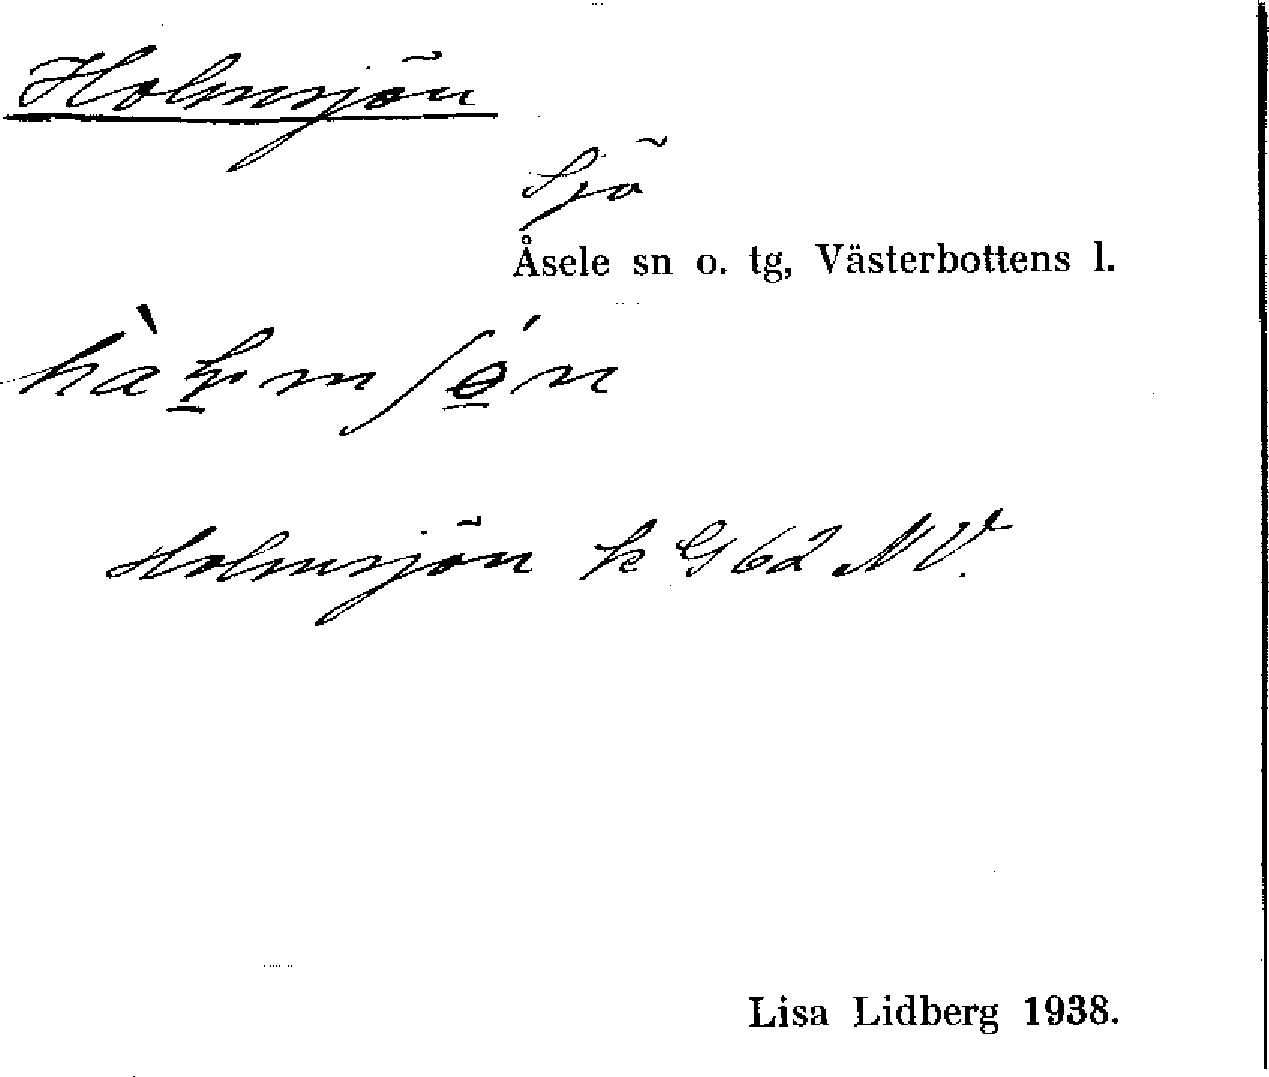 Holmsjön
Sjö
Åsele sn o. tg, Västerbottens l.
Holmsjön k G 62 NV.
Lisa Lidberg 1938.